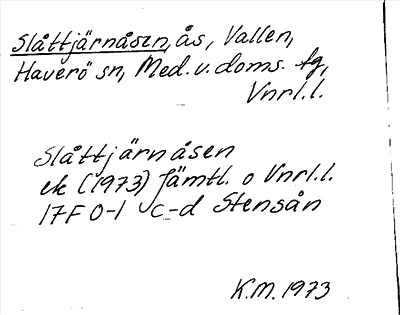 Slåttjärnåsen, ås, Vallen,
Haverö sn, Med. v. doms. tg,
Vnrl.l.
Slåttjärnåsen
ek (1973) Jämtl. o Vnrl.l.
17F 0-1 c-d Stensån
K.M. 1973